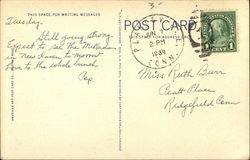 THIS SPACE FOR WRITING MESSAGES
POST CARD
THIS SPACE FOR ADDRESS
Tuesday.
Still going strong.
Expect to see the
in New Haven to morrow
love to the whole bunch
Pop
JUN
2 PM
1934
CONN.
1
Miss Ruth Burr
Pratt Place
Ridgefield Conn